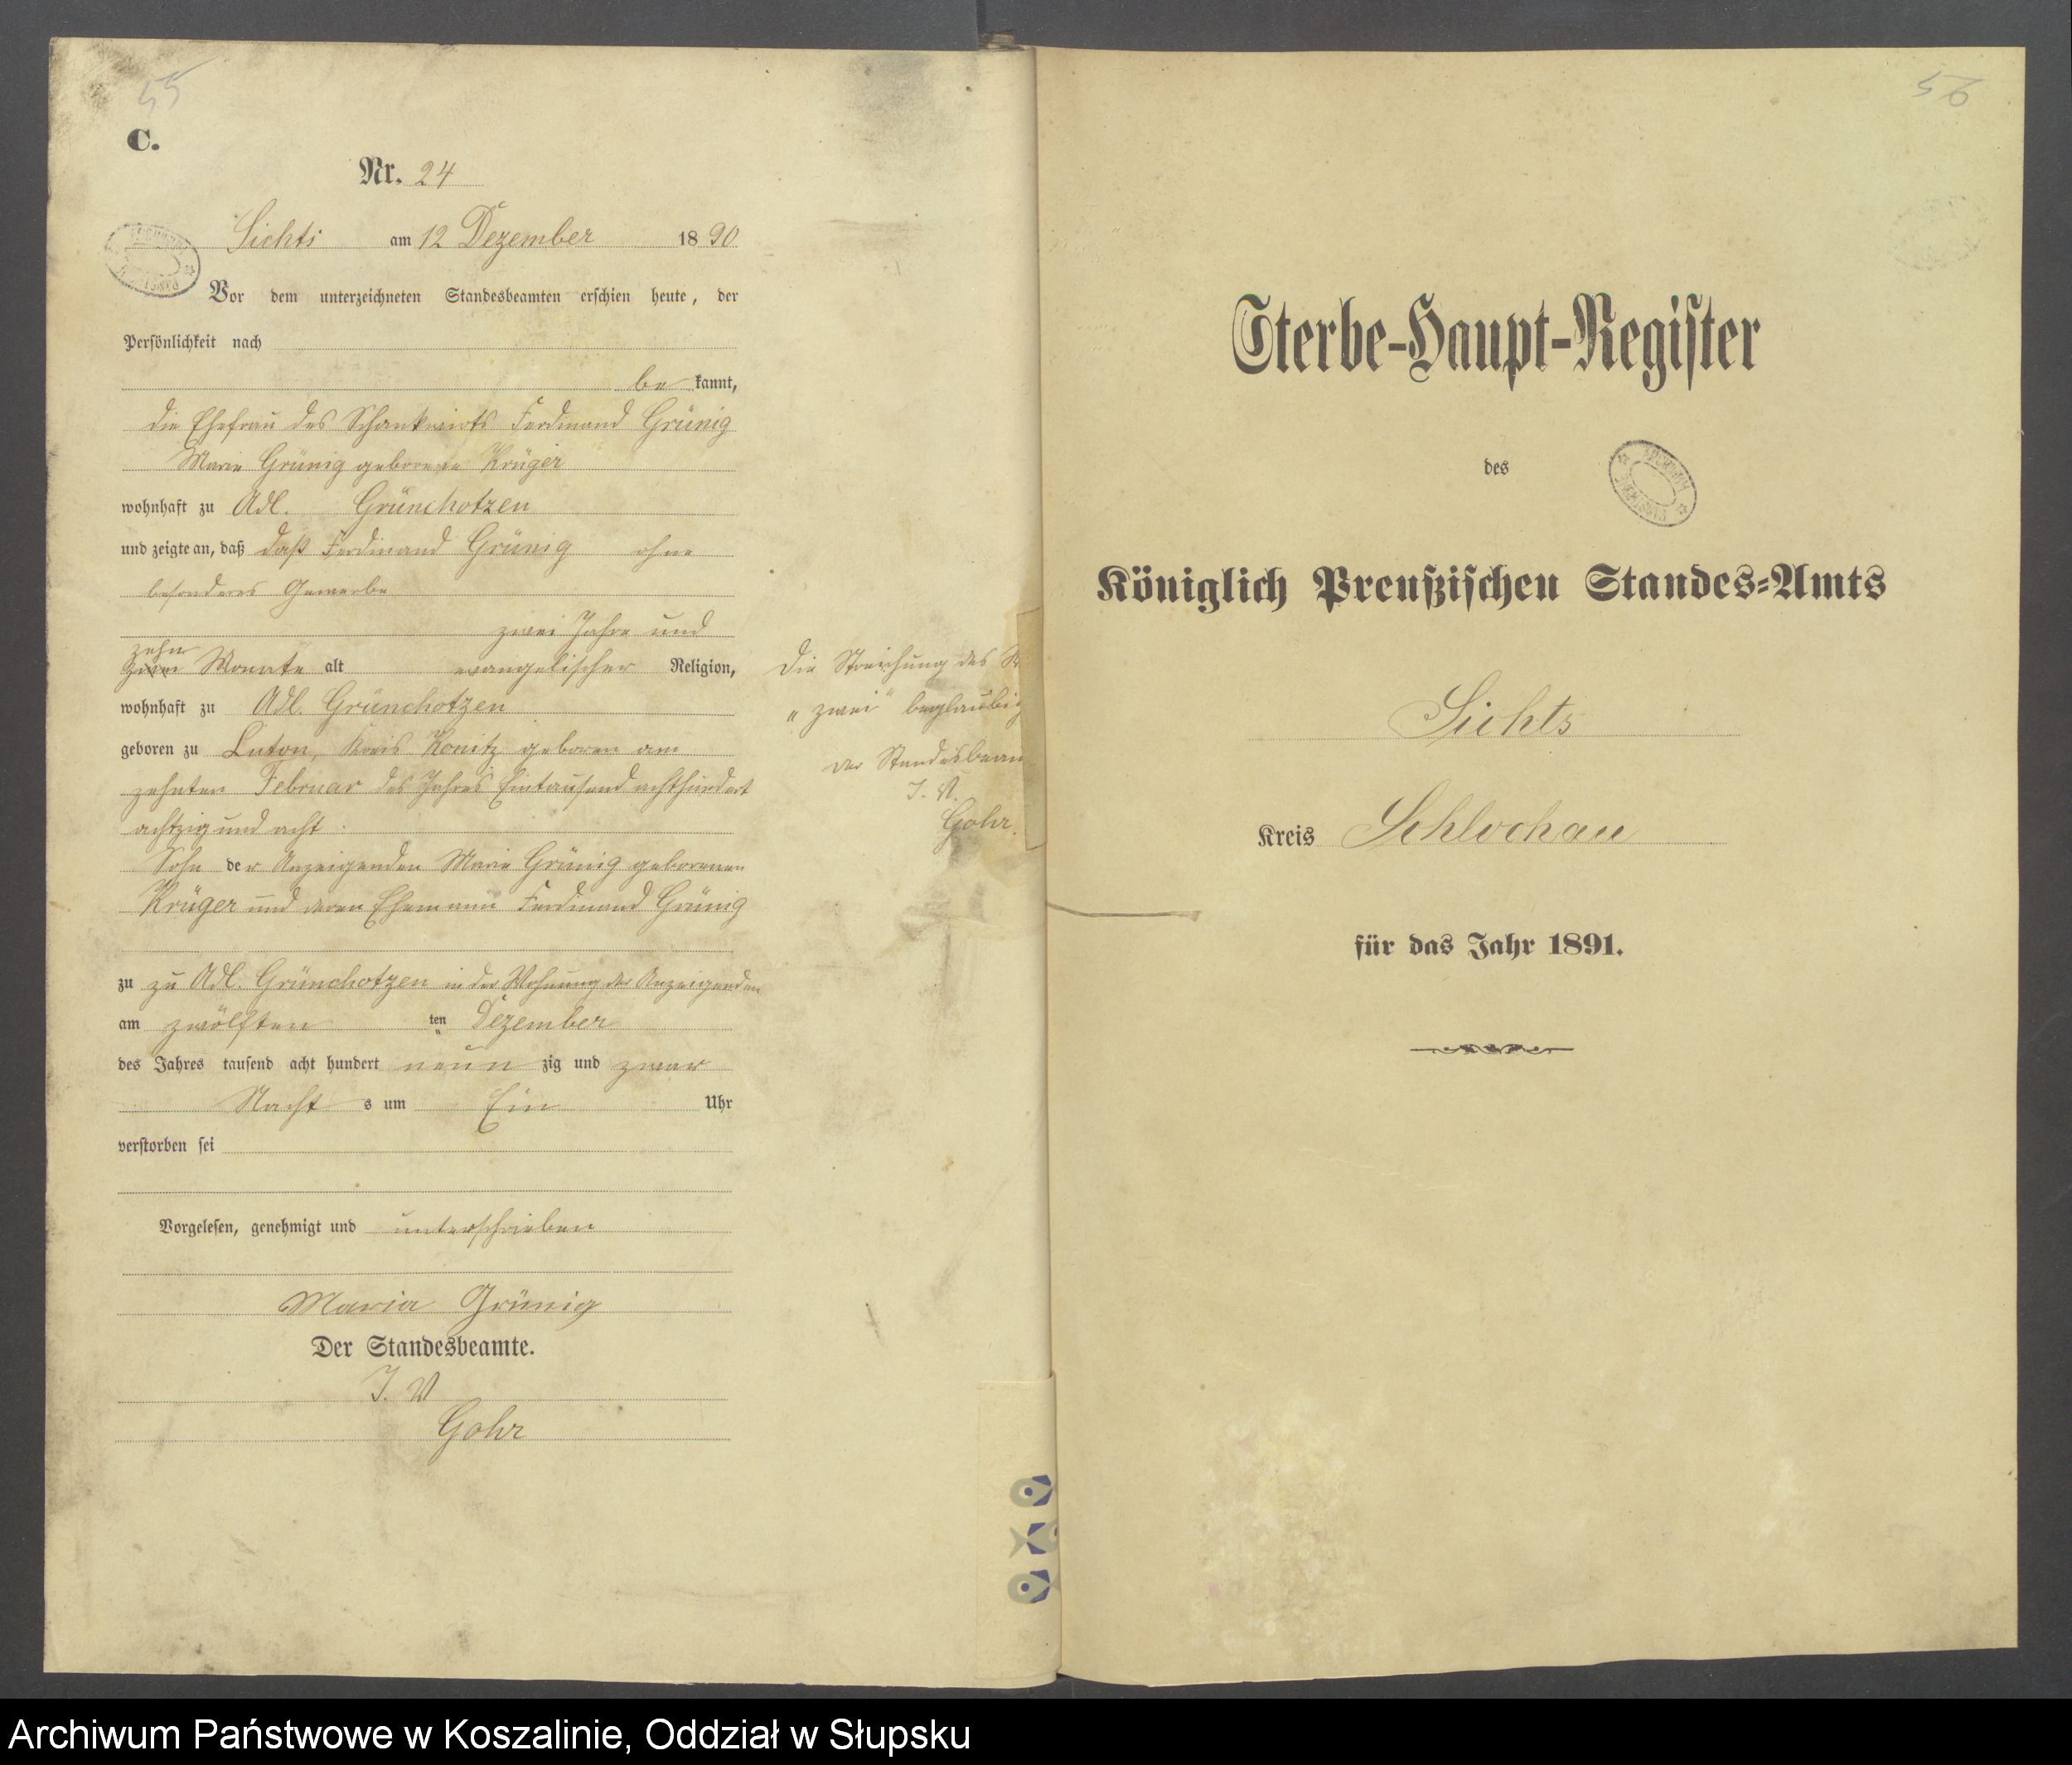 55
C.
Nr. 24
Sichts am 12 Dezember 1890
Vor dem unterzeichneten Standesbeamten erschien heute, der
Persönlichkeit nach
be kannt,
die Ehefrau des Schankwirts Ferdinand Grünig
Marie Grünig geborene Krüger
wohnhaft zu Adl. Grünchotzen
und zeigte an, daß daß Ferdinand Grünig ohne
besonderes Gewerbe
zwei Jahre und
zehn
zwei Monate alt evangelischer Religion,
wohnhaft zu Adl. Grünchotzen
geboren zu Luton, Kreis Konitz geboren am
zehnten Februar des Jahres Eintausend achthundert
achtzig und acht
Sohn der Anzeigenden Marie Grünig geborenen
Krüger und deren Ehemann Ferdinand Grünig
zu zu Adl. Grünchotzen in der Wohnung der Anzeigenden
am zwölften ten Dezember
des Jahres tausend acht hundert neun zig und zwar
Nacht s um Ein Uhr
verstorben sei
Vorgelesen, genehmigt und unterschrieben
Maria Grünig
Der Standesbeamte.
J. V
Gohr
Die Streichung des
"zwei" beglaubig
Der Standesbeam
J. V.
Gohr.
56
Sterbe-Haupt-Register
des
Königlich Preußischen Standes-Amts
Sichts
Kreis Schlochau
für das Jahr 1891.
Archiwum Państwowe w Koszalinie, Oddział w Słupsku